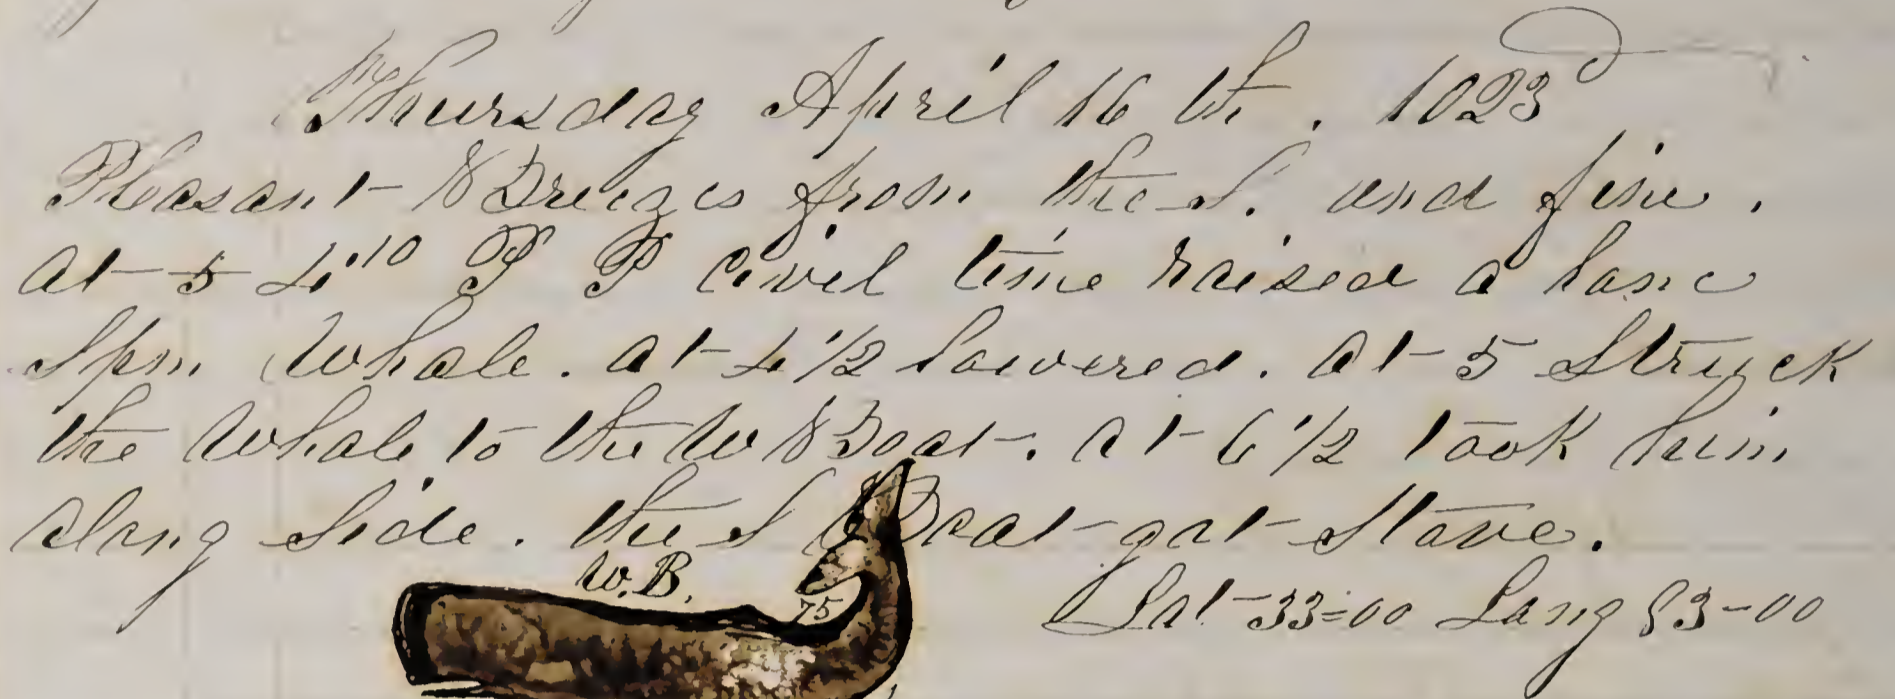 Thursday April 16 th. 1023
Pleasant Breezes from the S. and fine.
At 5 4'10 civil time raised a lone
Spm Whale. at 4 1/2 lowered. at 5 Struck
the Whale to the W Boat. at 6 1/2 took him
along Side. the S Boat got Stove.
W.B.
75
Lat 33=00 Long 83-00